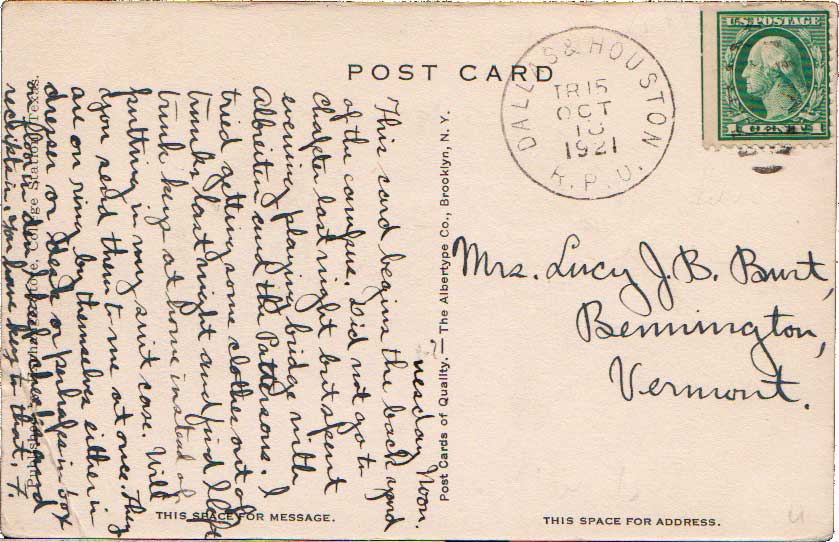 POST CARD
U.S. POSTAGE
1 CENT 1
DALLAS & HOUSTON
TR 15
OCT
1921
R.P.O.
Mrs. Lucy J. B. Burt,
Bennington,
Vermont.
THIS SPACE FOR ADDRESS.
Post Cards of Quality. — The Albertype Co., Brooklyn, N. Y.
Noon.
This card begins the back yard
of the campus. Did not go to
chapter last night but spent
evening playing bridge with
and the Pattersons. I
tried getting some clothes out of
trunks last night and find I left
trunk keys at home instead of
putting in my suit case. Will
you send them to me at once. They
are on ring by themselves either in
dresser or desk or perhaps in box
on floor in
receipts in. You have key to that. F.
THIS SPACE FOR MESSAGE.
Published College Station, Texas.